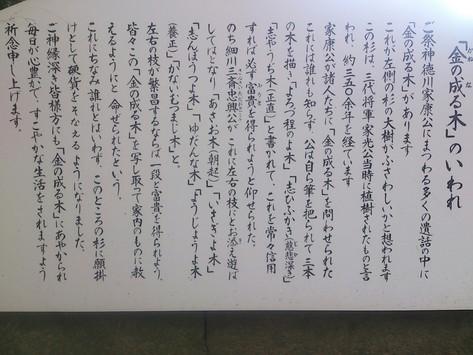 「金の成る木」のいわれ
ご祭神徳川家康公にまつわる多くの遺話の中に
「金の成る木」があります
これが、左側の杉の大樹がふさわしいかと想われます
この杉は、三代将軍家光公当時に植樹されたものと言
われ、約三五〇余年を経ています
家康公が諸人たちに「金の成る木」を問わせられた
これには誰れも知らず、公は自ら筆を把られて、三本
の木を描き「よろつ程のよ木」「志ひふかき(慈悲深き)」
「志やうぢ木(正直)」と書かれて、これを常々信用
すれば必ず富貴を得られようと仰せられた。
のち細川三斎忠興公がこれに左右の枝にとお添え遊ば
してはとなり、「あさお木(朝起)」「いさぎよ木」
「志んぼうつよ木」「ゆだんな木」「ようじょうよ木
(養正)」「かないむつまじ木」と。
左右の枝が繁昌するならば一段と富貴を得られよう。
皆々この「金の成る木」を写し取って家内のものに教
えるようにと 命ぜられたという。
これにちなみ誰れとはいわず、このところの杉に願掛
けとして硬貨をそなえるようになりました。
ご神縁深き皆様方にも「金の成る木」にあやかられ
毎日が心豊かで、すこやかな生活をされますよう
祈念申し上げます。